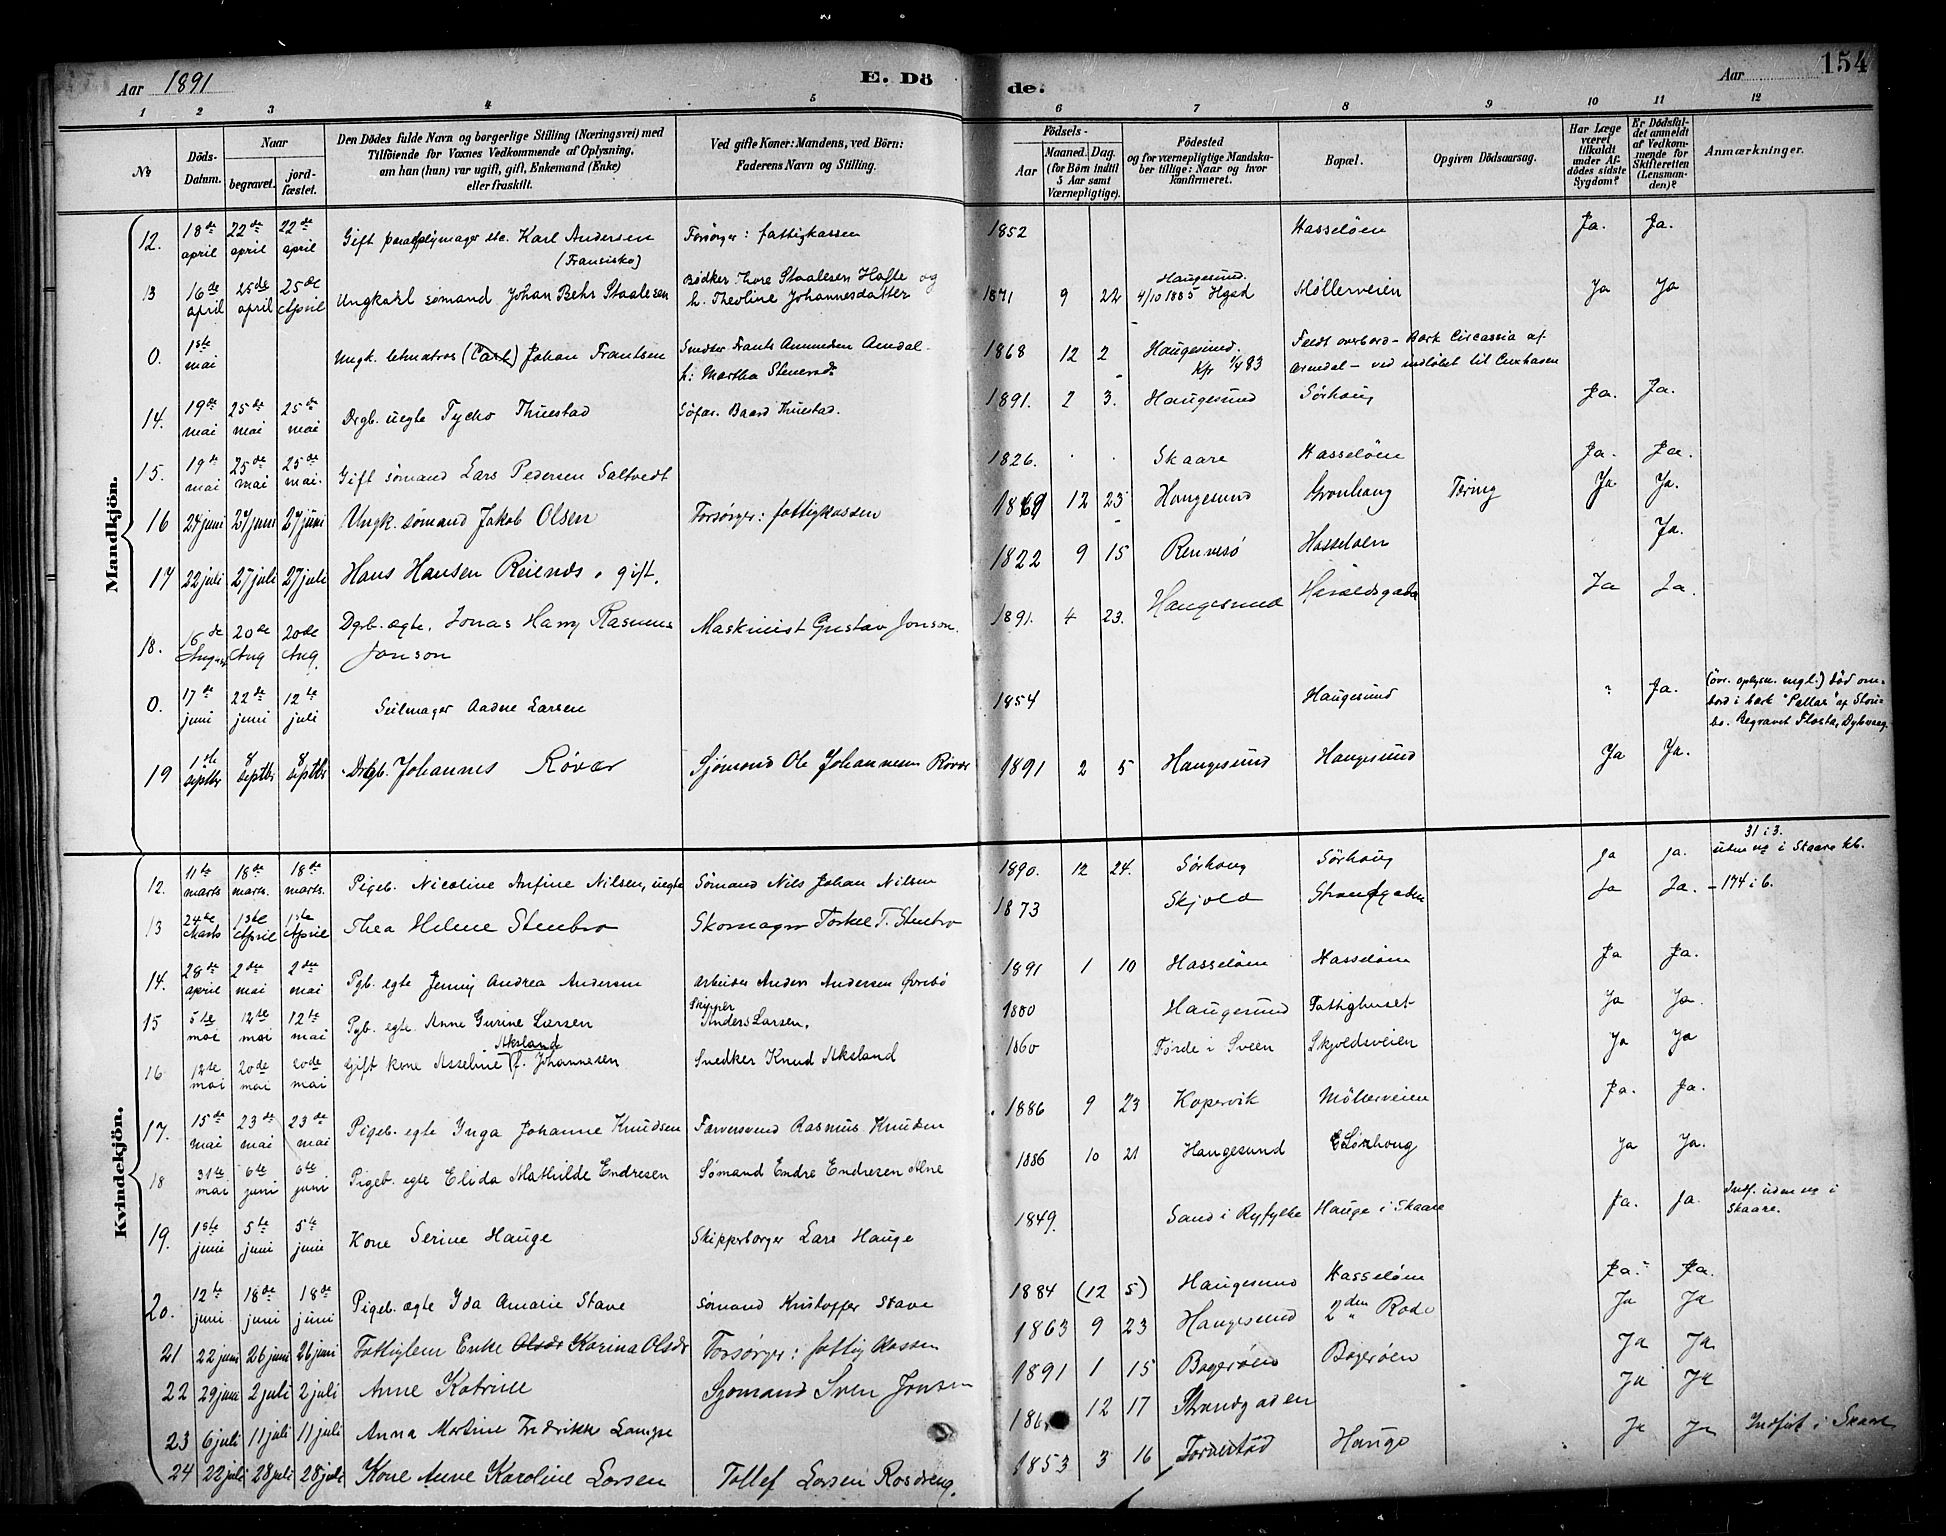 Aar 1891 E. Dö de. Aar 154
1 2 3 4 5 6 7 8 9 10 11 12
No Döds-Datum. Naar begravet. jordfæstet. Den Dödes fulde Navn og borgerlige Stilling (Næringsvei) med Tilföiende for Voxnes Vedkommende af Oplysning, om han (hun) var ugift, gift, Enkemand (Enke) eller fraskilt. Ved gifte Koner: Mandens, ved Börn: Faderens Navn og Stilling. Födsels- Aar Maaned. Dag. (for Börn indtil 5 Aar samt Værnepligtige). Födested og for værnepligtige Mandskaber tillige: Naar og hvor konfirmeret. Bopæl. Opgiven Dödsaarsag. Har Læge været tilkaldt under Afdödes sidste Sygdom? Er Dödsfaldet anmeldt af Vedkommende for Skifteretten (Lensmanden)? Anmærkninger.
Mandkjön.
12. 18de april 22de april 22de april Gift paraplymager etc. Karl Andersen (Fransisko) Forsörger: fattigkassen 1852 Hasseløen Ja. Ja.
13 16de april 25de april 25de April Ungkarl sømand Johan Behr Staalesen Bødker Thore Staalesen Hafte og h. Theoline Johannesdatter 1871 9 22 Haugesund. 4/10 1885 Hgsd Møllerveien Ja Ja
0. 1ste mai Ungk. letmatros (Carl) Johan Frantsen Smedsv. Frants Amundsen Aendal h: Martha Stenersdr 1868 12 2 Haugesund. Kfr 1/4 83 Faldt overbord - Bark Circassia af Arendal - ved indløbet til Cuxhaven
14. 19de mai 25de mai 25de mai Drgb. uegte Tycho Thuestad Søfar. Baard Thuestad. 1891. 2 3. Haugesund Sørhaug Ja. Ja.
15. 19de mai 25de mai 25de mai. Gift sømand Lars Pedersen Saltvedt 1826. Skaare Hasseløen Ja. Ja.
16 24 juni 27 juni 27 juni Ungk. sømand Jakob Olsen Forsørger: fattigkassen 1869 12 25 Haugesund Grønhaug Tæring Ja Ja.
17 22 juli 27 juli 27 juli Hans Hansen Reiends, gift. 1822 9 15 Rennesø Hasseløen Ja.
18. 16de August 20de Aug 20de Aug. Dgb. ægte. Jonas Harry Rasmus Jonson Maskinist Gustav Jonson. 1891. 4 23. Haugesund Haraldsgaden Ja Ja.
0. 17de juni 22de juni 12te juli Seilmager Aadne Larsen 1854 Haugesund " Ja. (övr. oplysn. mgl.) död ombord i bark "Pallas" af . Begravet Flosta, Dybvaag
19 1ste septbr 8 septbr 8 septbr Drgb. Johannes Røvær Sjømand Ole Johannessen Røvær 1891 2 5 Haugesund Haugesund Ja Ja.
Kvindekjön.
12. 11te marts 18de marts. 18de marts. Pigeb. Nicoline Anfine Nilsen, uegte Sømand Nils Johan Nilsen 1890. 12 24. Sørhaug Sørhaug Ja Ja. 31 i 3. uden no i Skaare kb.
13 24de Marts 1ste April 1ste April Thea Helene Stenbro Skomager Torkel T. Stenbro 1873 Skjold Strandgaden Ja Ja. - 174 i 6.
14. 28de april 2den mai 2den mai Pgb. egte Jenny Andrea Andersen Arbeider Anders Andersen Øvrebø 1891 1 10 Hasseløen Hasseløen Ja Ja.
15 5te mai 12te mai 12te mai Pgb. egte Anne Gurine Larsen Skipper Anders Larsen. 1880 Haugesund Fattighuset Ja Ja.
16 12te mai 20de mai 20de mai Gift kone Asseline Aksland f. Johannesen Snedker Knud Aksland 1860 Førde i Sveen Skjoldsveien Ja Ja
17. 15de mai 23de mai 23de mai Pigeb. egte Inga Johanne Knudsen Farversvend Rasmus Knudsen 1886 9 23 Kopervik Møllerveien Ja. Ja.
18 31te mai 6te juni 6te juni Pigeb. egte Elida Mathilde Endresen Sømand Endre Endresen Alne 1886 10 21 Haugesund Sørhaug Ja Ja.
19. 1ste juni 5te juni 5te juni Kone Serine Hauge Skipperborger Lars Hauge 1849. Sand i Ryfylke Hauge i Skaare Ja. Ja. Indf. uden no i Skaare.
20. 12te juni 18de juni 18de juni Pigeb. egte Ida Amalie Stave Sømand Kristoffer Stave 1884 (12 5) Haugesund Hasseløen Ja. Ja.
21 22 juni 26 juni 26 juni Fattiglem Enke Olsdr Karina Olsdr Forsørger: fattigkassen 1863 9 23 Haugesund 2den Rode Ja Ja
22 29 juni 2 juli 2 juli Anne Katrine Sjømand Sven Jonsen 1891 1 15 Bagerøen Bagerøen Ja Ja
23 6 juli 11 juli 11 juli Anna Martine Fredrikke Lange 186 12 17 Strandgaden Ja Ja
24 22 juli 28 juli 28 juli Kone Anne Karoline Larsen Tollef Larsen Rosdreng. 1853 3 16 Hauge Ja Ja Indført i Skaare